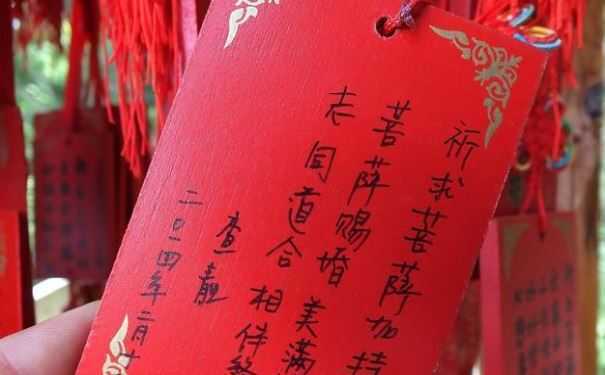 祈求菩萨加持
菩萨赐婚美满
志同道合相伴终
查靓
二〇一四年二月十